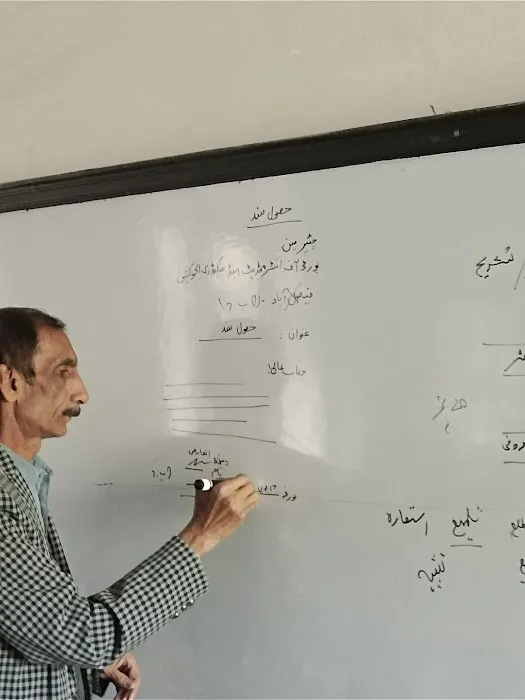 حصول سند
چیئرمین
بورڈ آف انٹرمیڈیٹ اینڈ سیکنڈری ایجوکیشن
فیصل آباد
عنوان : حصول سند
جناب عالی!
العارض
نام
ا ب ج
تشریح
تلمیح استعارہ
تشبیہ